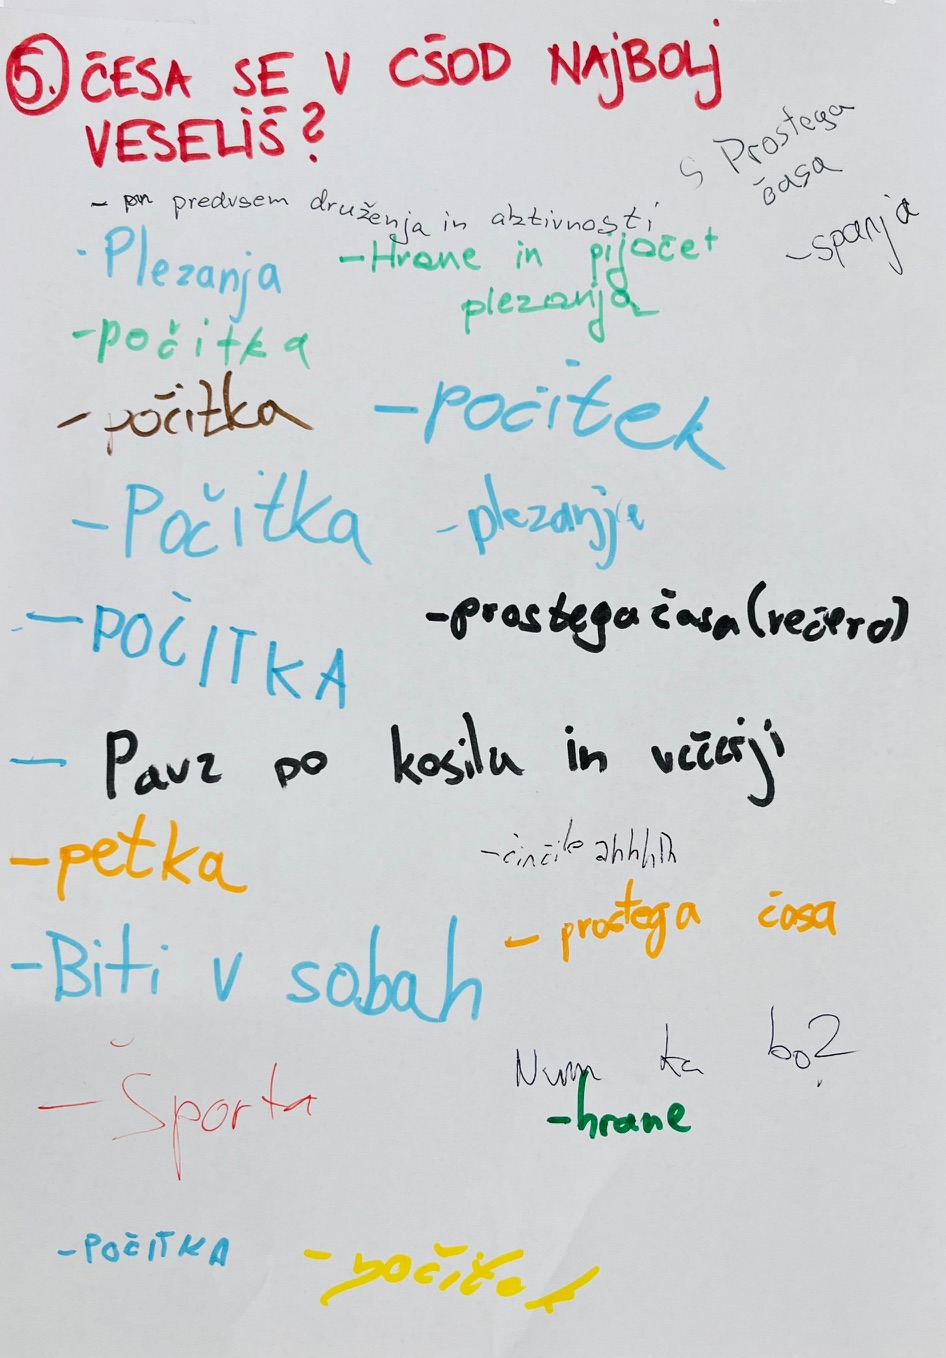 5. ČESA SE V CŠOD NAJBOLJ
VESELIŠ?
S Prostega
časa
- predvsem druženja in aktivnosti
- spanja
· Plezanja
- Hrane in pijače +
plezanja
- počitka
- počitka
- počitek
- Počitka
- plezanje
- POČITKA
- prostega časa (večero)
- Pavz po kosilu in večerji
- petka
- činčile ahhhh
- prostega časa
- Biti v sobah
ka bo?
- Športa
- hrane
- POČITKA
- počitek